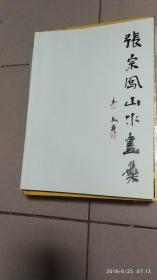 張宗鳳山水畫集
2019/6/25 07:13